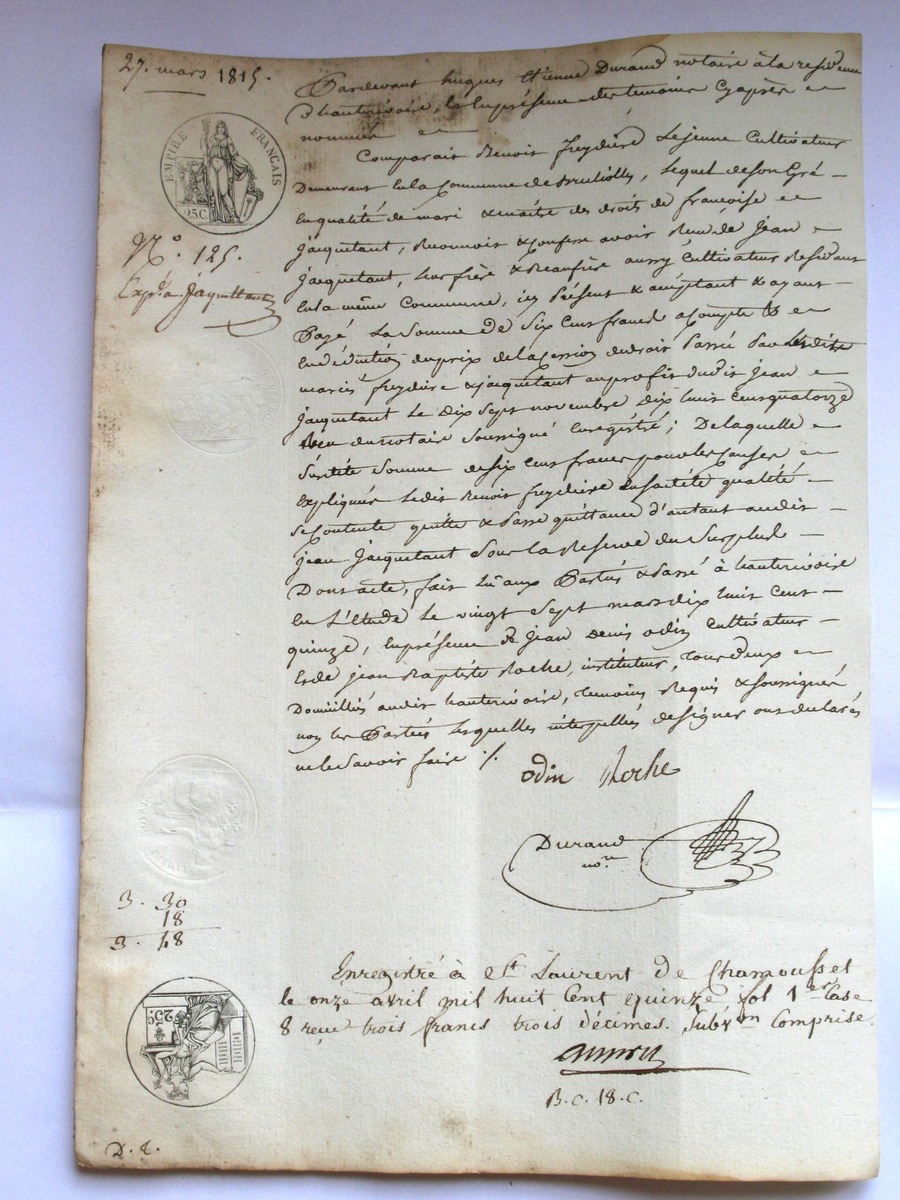 27. mars 1815.
Pardevant hugues Etienne Durand notaire à la residence
D'hauterivoire, & En présence des temoins Cyaprès
nommés
Comparait Benoit freydière Lejeune Cultivateur
Demeurant En la Commune de Brullolles, Lequel de son Gré
En qualité de mari & maitre des droits de francoise
jacquetant, Reconnoit & Confesse avoir Reçu de jean
jacquetant, leur frère & Beaufrère aussy Cultivateur Residant
En la même Commune, icy Présent & acceptant & ayant
Payé La Somme de Six Cens francs acompte &
En déduction du prix de la Cession de droit Passé Par Lesdits
mariés freydière & jacquetant au profit dudit jean
jacquetant Le dix Sept novembre dix huit Cens quatorze
Reçu du notaire Soussigné Enregistré ; De laquelle
Susditte Somme de six Cens francs pour les Causes
Expliquées Ledit Benoit freydière En saditte qualité
se Contente quitte & Passe quittance d'autant audit
jean jacquetant Sous la Reserve du Surplus
Dont acte, fait Lu aux Parties & Passé à hauterivoire
En L'étude Le vingt Sept mars dix huit Cens
quinze, En présence de jean denis odin Cultivateur
Et de jean Baptiste Roche, instituteur, tous deux
Domiciliés audit hauterivoire, temoins Requis & soussignés
non les Parties Lesquelles interpellées de signer ont declarés
ne le Savoir faire ./.
odin Roche
Durand
no.re
EMPIRE FRANÇAIS
25C
N.o 125.
Exp.é a Jaquettant
3. 30
18
3. 48
25C.
Enregistré à St. Laurent de Chamousset
le onze avril mil huit Cent quinze fol 1er Case
8 reçu trois francs trois décimes. Subv.on Comprise.
B. C. 18. C.